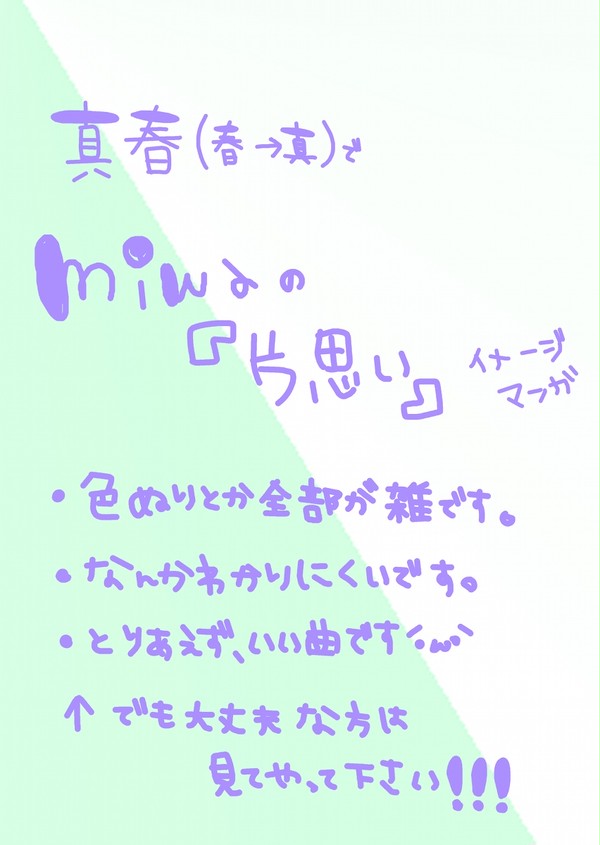 真春(春→真)で
miwaの
『片思い』
イメージ
マンガ
・色ぬりとか全部が雑です。
・なんかわかりにくいです。
・とりあえず、いい曲です´ω`
↑でも大丈夫な方は
見てやって下さい!!!